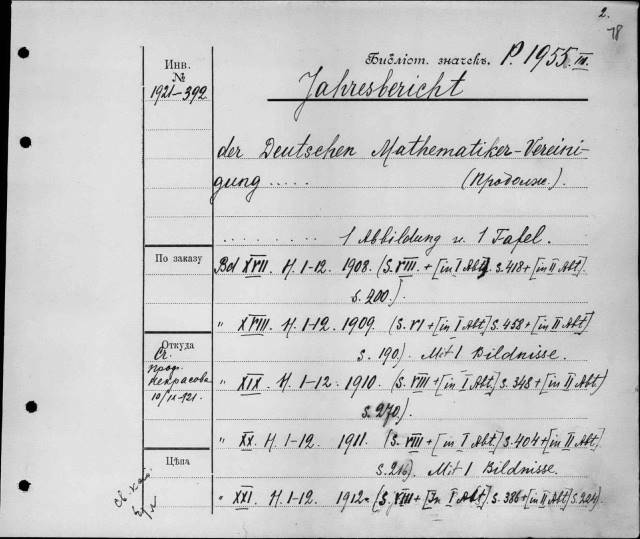 2.
78
Инв.
№
1921–392
Библіот. значекъ. P. 1955 III.
Jahresbericht
der Deutschen Mathematiker-Vereini-
gung .....
(Продолж.).
........ 1 Abbildung u. 1 Tafel.
По заказу
Bd XVII. H. 1-12. 1908. (S. VIII. + [in I Abt]. S. 418 + [in II Abt].
S. 200.).
" XVIII. H. 1-12. 1909. (S. VI + [in I Abt] S. 458 + [in II Abt]
S. 190). Mit 1 Bildnisse.
Откуда
Ст.
проф.
Некрасова
10/II-121.
" XIX. H. 1-12. 1910. (S. VIII + [in I Abt.] S. 348 + [in II Abt)
S. 270.).
" XX. H. 1-12. 1911. (S. VIII + [in I Abt.] S. 404 + [in II Abt.
S. 216). Mit 1 Bildnisse.
Цѣна
" XXI. H. 1-12. 1912. (S. VIII + [In I Abt] S. 386 + [in II Abt] S. 224)